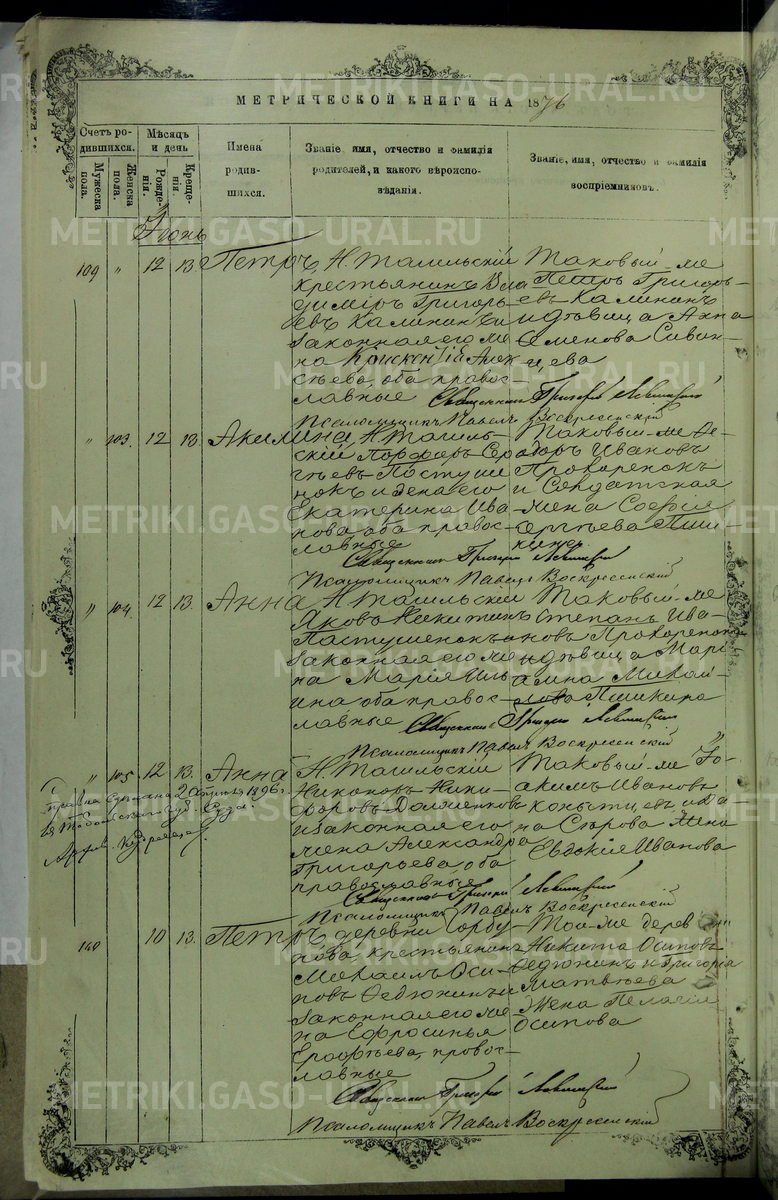 МЕТРИЧЕСКОЙ КНИГИ НА 1876
Счетъ родившихся.
Мужеска пола.
Женска пола.
Мѣсяцъ и день
Рожденія.
Крещенія
Имена родившихся.
Званіе, имя, отчество и фамилія родителей, и какого вѣроисповѣданія.
Званіе, имя, отчество и фамилія воспріемниковъ.
Іюнь
109 " 12 13 Петръ
Н. Тагильскій
крестьянинъ Вла-
димиръ Григорь-
евъ Калининъ и
законная его же-
на
сѣева, оба правос-
лавные
Таковый-же
Петръ Григорь-
евъ Калининъ
и дѣвица Анна
Семенова
Священникъ Григорій Левицкій
Псаломщикъ Павелъ Воскресенскій
" 103. 12 13. Акилина
Н. Тагиль-
скій
гѣевъ Постуше
нокъ и жена его
Екатерина Ива-
нова оба правос-
лавные
Таковый-же Ѳе-
доръ Ивановъ
Прохоренокъ
и Солдатская
жена Софія
Сергѣева
Священникъ Григорій Левицкій
Псаломщикъ Павелъ Воскресенскій
" 104. 12 13. Анна
Н. Тагильскій
Яковъ Никитинъ
Пастушенокъ
законная его же-
на Марія Иль-
ина оба правос-
лавные
Таковый-же
Степанъ Ива-
новъ Прохоренокъ
и дѣвица Марі-
амна Михай-
лова Пшикина
Священникъ Григорій Левицкій
Псаломщикъ Павелъ Воскресенскій
" 105 12 13. Анна
2 Апрѣля 1896 г.
Н. Тагильскій
Никоноръ Ники-
форовъ
и законная его
жена Александра
Григорьева оба
православные
Таковый-же Іо-
акимъ Ивановъ
жена
Евдокія Иванова
Священникъ Григорій Левицкій
Псаломщикъ Павелъ Воскресенскій
110 10 13. Петръ
деревни Горбу-
нова, крестьянинъ
Михаилъ Оси-
повъ Ѳедюнинъ и
законная его же-
на Ефросинья
Ерофѣева, правос-
лавные
Той-же дерев
Никита Осиповъ
Ѳедюнинъ и Григорія
Матвѣева
жена Пелагія
Осипова
Священникъ Григорій Левицкій
Псаломщикъ Павелъ Воскресенскій
METRIKI.GASO-URAL.RU